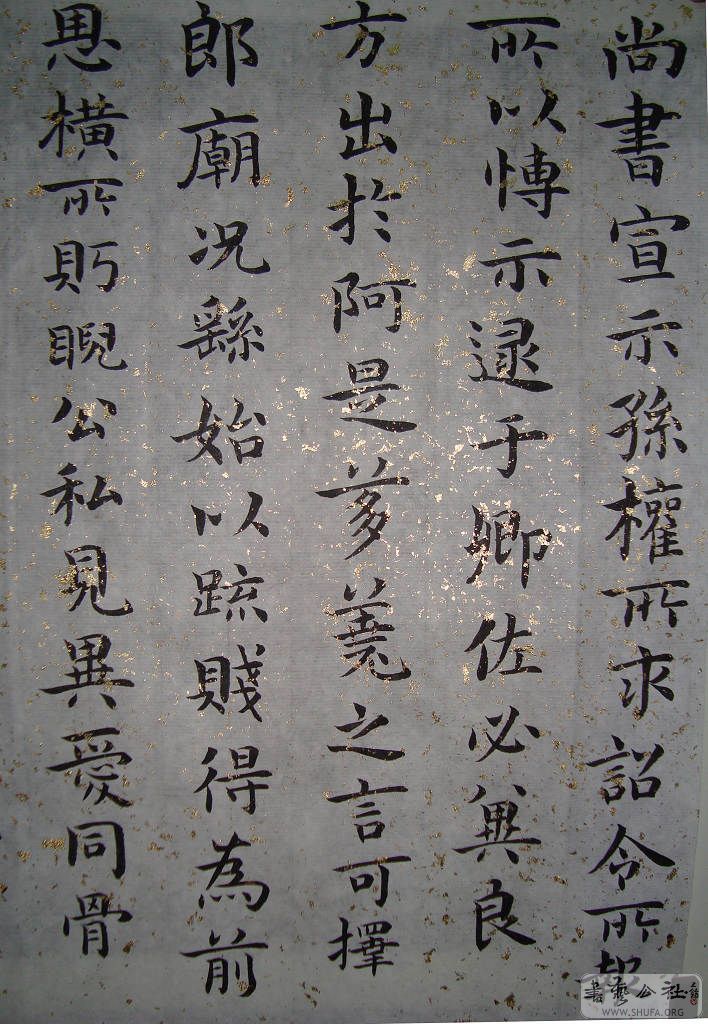 尚書宣示孫權所求詔令所報
所以博示逮于卿佐必冀良
方出於阿是芻蕘之言可擇
郎廟況繇始以疏賤得為前
恩橫所眄睨公私見異愛同骨
書藝公社
WWW.SHUFA.ORG